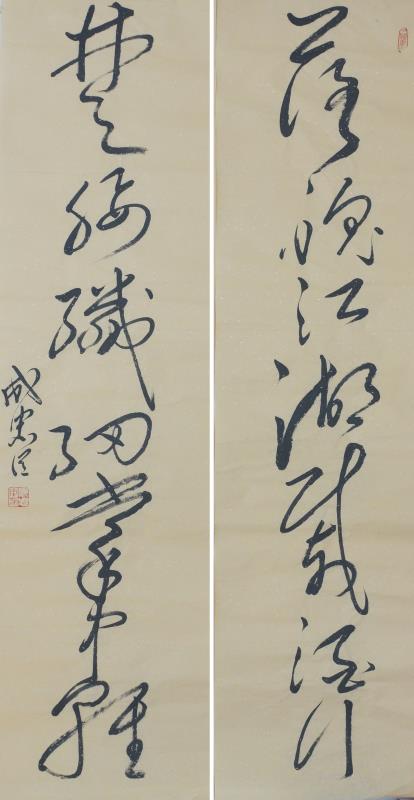 落魄江湖載酒行
楚腰纖細掌中輕
成忠臣